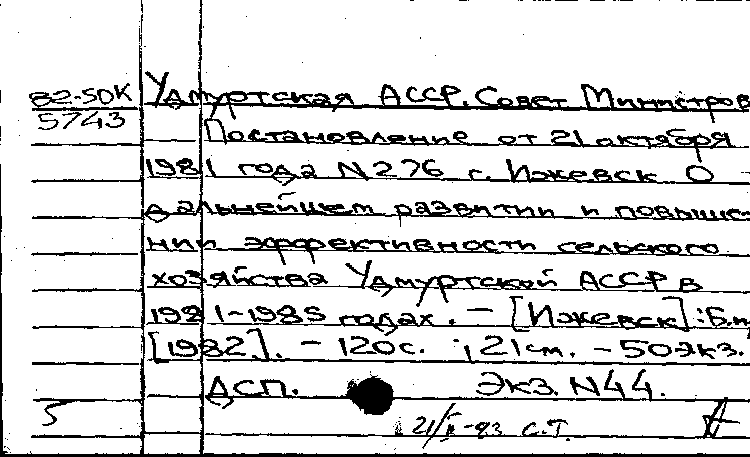 В2-50К Удмуртская АССР. Совет Министров
5743 Постановление от 21 октября
1981 года N276 г. Ижевск О
дальнейшем развитии и повыше-
нии эффективности сельского
хозяйства Удмуртской АССР в
1981-1985 годах. - [Ижевск]: Б.и,
[1982]. - 120с. ; 21см. - 50экз.
ДСП. Экз. N44.
5 С.Т.